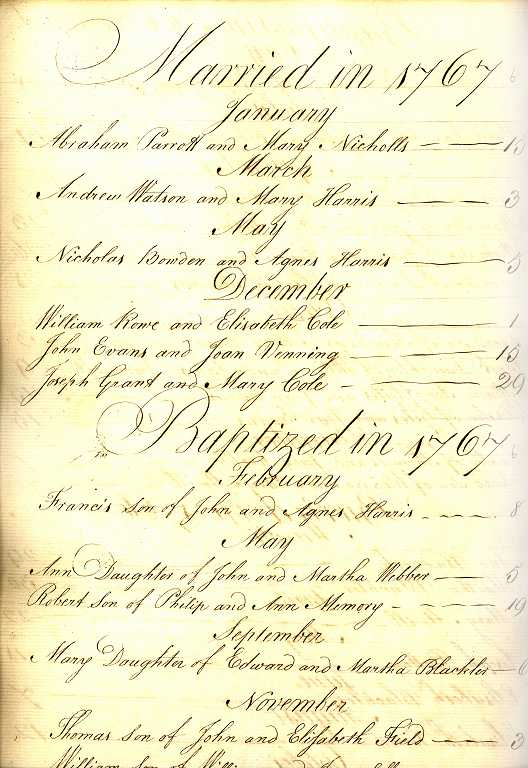 Married in 1767
January
Abraham Parrott and Mary Nicholls — 15
March
Andrew Watson and Mary Harris — 3
May
Nicholas Bowden and Agnes Harris — 5
December
William Rowe and Elisabeth Cole — 1
John Evans and Joan Venning — 15
Joseph Grant and Mary Cole — 29
Baptized in 1767
February
Francis Son of John and Agnes Harris — 8
May
Ann Daughter of John and Martha Webber — 5
Robert Son of Philip and Ann Memory — 19
September
Mary Daughter of Edward and Martha Blackler — 6
November
Thomas Son of John and Elisabeth Field — 3
William Son of